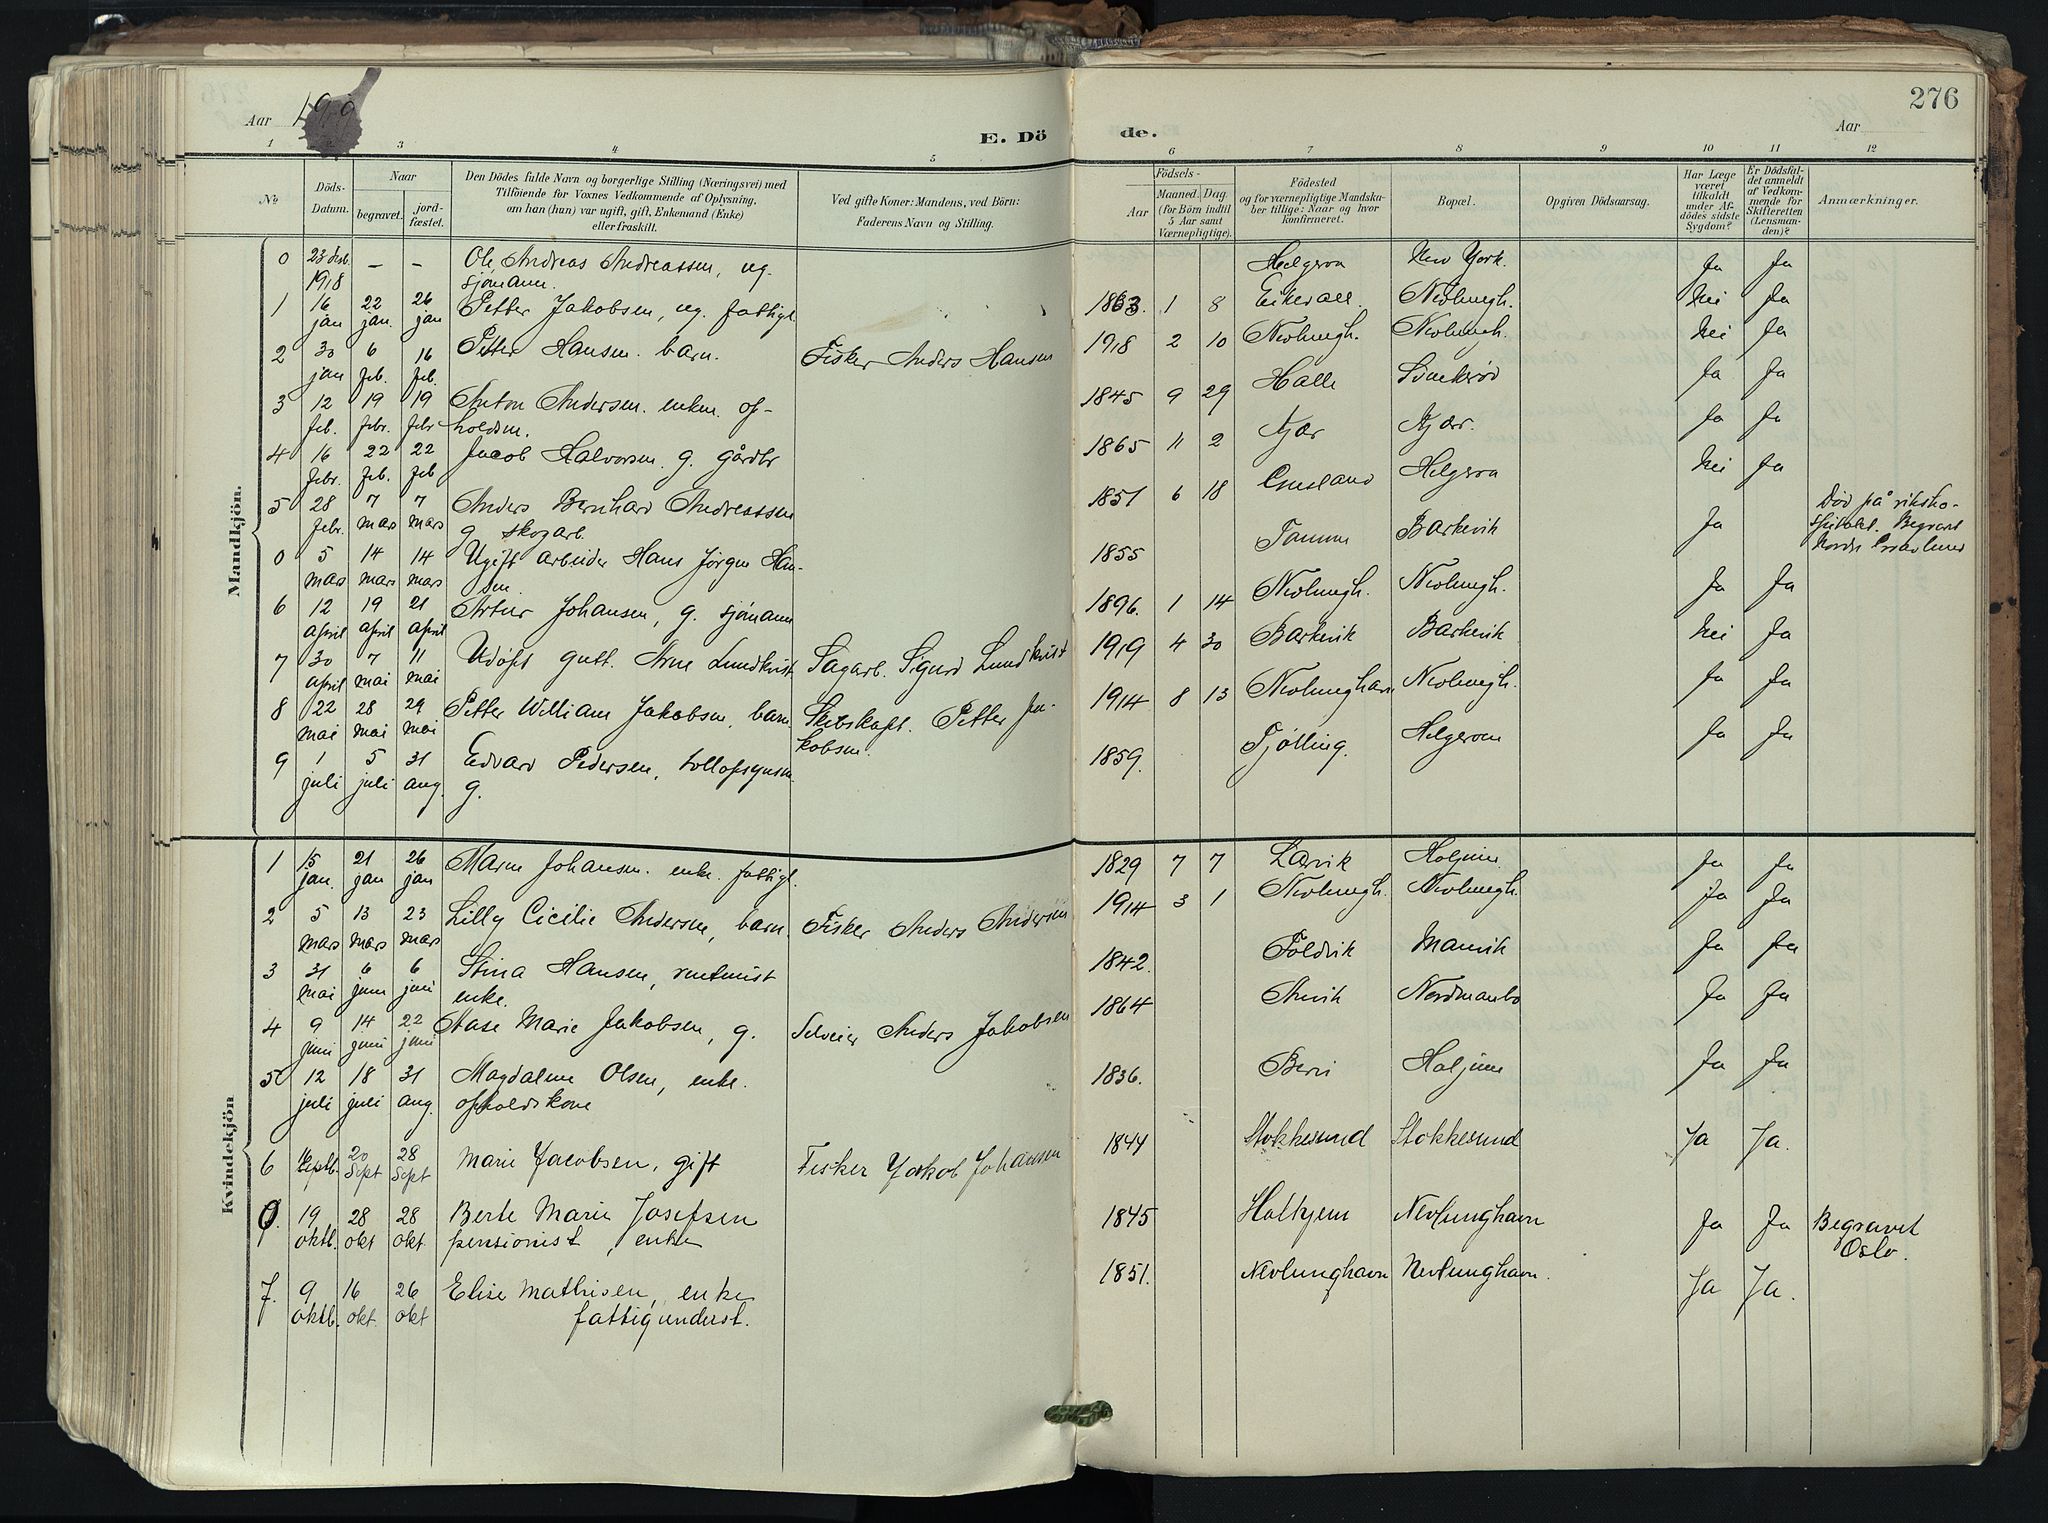 276
Aar 19
E. Dö
de.
Aar
1 2 3 4 5 6 7 8 9 10 11 12
No
Döds-Datum.
Naar
begravet.
jord-fæstet.
Den Dödes fulde Navn og borgerlige Stilling (Næringsvei) med
Tilföiende for Voxnes Vedkommende af Oplysning,
om han (hun) var ugift, gift, Enkemand (Enke)
eller fraskilt.
Ved gifte Koner: Mandens, ved Börn:
Faderens Navn og Stilling.
Födsels-
Aar
Maaned. Dag
(for Börn indtil
5 Aar samt
Værnepligtige).
Födested
og for værnepligtige Mandska-
ber tillige: Naar og hvor
konfirmeret.
Bopæl.
Opgiven Dödsaarsag.
Har Læge
været
tilkaldt
under Af-
dödes sidste
Sygdom?
Er Dödsfal-
det anmeldt
af Vedkom-
mende for
Skifteretten
(Lensman-
den)?
Anmærkninger.
Mandkjön.
0 23 1918 – – Ole Andreas Andreassen, ug. sjömann. Helgeroa New York. Ja Ja
1 16 jan 22 jan. 26 jan Petter Jakobsen, ug. fattigl. 1863. 1 8 Eikevall Nevlungh. Nei Ja
2 30 jan 6 feb. 16 feb. Petter Hansen. barn. Fisker Anders Hansen 1918 2 10 Nevlungh. Nevlungh. Nei Ja
3 12 feb. 19 febr. 19 febr Anton Andersen. enkem. op-
holdsm. 1845 9 29 Halle Ja Ja
4 16 febr. 22 feb. 22 feb Jacob Halvorsen. g. gårdbr 1865 11 2 Kjær Kjær. Ja Ja
5 28 febr. 7 mars 7 mars Anders Bernhard Andreassen
g. skogarb. 1851 6 18 Helgeroa Nei Ja
0 5 mars 14 mars 14 mars Ugift arbeider Hans Jörgen Han-
sen. 1855 Tanum Barkevik Ja Död på riksho-
spitalet. Begravet
Nordre
6 12 april 19 april 21 april Artur Johansen, g. sjömann 1896. 1 14 Nevlungh. Nevlungh. Ja Ja
7 30 april 7 mai 11 mai Udöpt gutt. Arne Lundkvist Sagarb. Sigurd Lundkvist 1919 4 30 Barkevik Barkevik Nei Ja
8 22 mai 28 mai 29 mai Petter William Jakobsen, barn Skibskapt. Petter Ja-
kobsen. 1914 8 13 Nevlunghavn Nevlungh. Ja Ja
9 1 juli 5 juli 31 aug. Edvard Pedersen, tollopsynsm.
g. 1859. Tjölling. Helgeroa Ja Ja
Kvindekjön
1 15 jan. 21 jan 26 jan Maren Johansen. enke. fattigl. 1829 7 7 Larvik Holjum Ja Ja
2 5 mars 13 mars 23 mars Lilly Cicilie Andersen, barn. Fisker Anders Andersen 1914 3 1 Nevlungh. Nevlungh. Ja Ja
3 31 mai 6 juni 6 juni Stina Hansen, rentenist
enke. 1842. Foldvik Manvik Ja Ja
4 9 juni 14 juni 22 juni Aase Marie Jakobsen, g. Selveier Anders Jakobsen 1864 Anvik Nordmanbo Ja Ja
5 12 juli 18 juli 31 aug. Magdalene Olsen, enke.
opholdskone 1836. Holjum Ja Ja
6 septb. 20 Sept 28 Sept Marie Jacobsen, gift Fisker Jakob Johansen 1844 Stokkesund Stokkesund Ja Ja.
0. 19 oktb. 28 okt 28 okt. Berte Marie Josefsen
pensionist, enke 1845 Holtjem Nevlunghavn Ja Ja Begravet
Oslo.
7. 9 oktb. 16 okt. 26 okt Elise Mathisen, enke
fattigunderst. 1851. Nevlunghavn Nevlunghavn. Ja Ja.